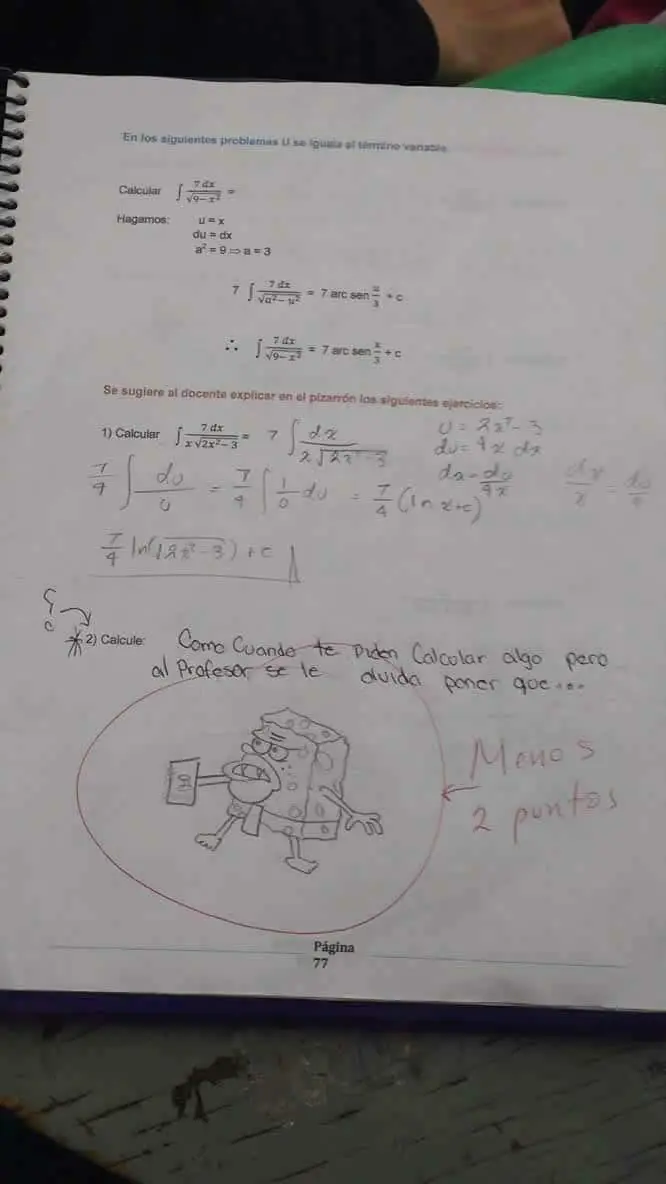 En los siguientes problemas U se iguala al término variable
Calcular ∫ 7 dx / √9−x² =
Hagamos: u = x
du = dx
a² = 9 ⇒ a = 3
7 ∫ 7 dx / √a²−u² = 7 arc sen u/3 + c
∴ ∫ 7 dx / √9−x² = 7 arc sen x/3 + c
Se sugiere al docente explicar en el pizarrón los siguientes ejercicios:
1) Calcular ∫ 7 dx / x√2x²−3 = 7 ∫ dx / 2√2x²−3
U = 2x²-3
du = 4x dx
dx = du/4x
7/4 ∫ du/u = 7/4 ∫ 1/u du = 7/4 (ln x+c)
7/4 ln(√2x²-3) + c
2) Calcule: Como Cuando te Piden Calcular algo pero
al Profesor se le olvida poner que...
Menos
2 puntos
Página
77